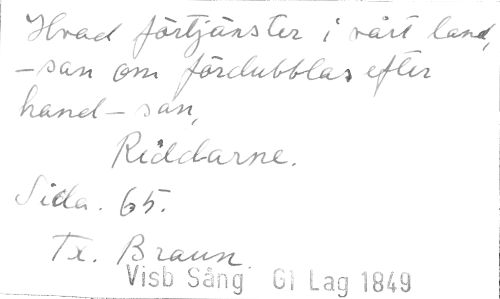 Hvad förtjänster i vårt land,
-san om fördubblas efter
hand-san,
Riddarne.
Sida. 65.
Tx. Braun.
Visb Sång Gl Lag 1849